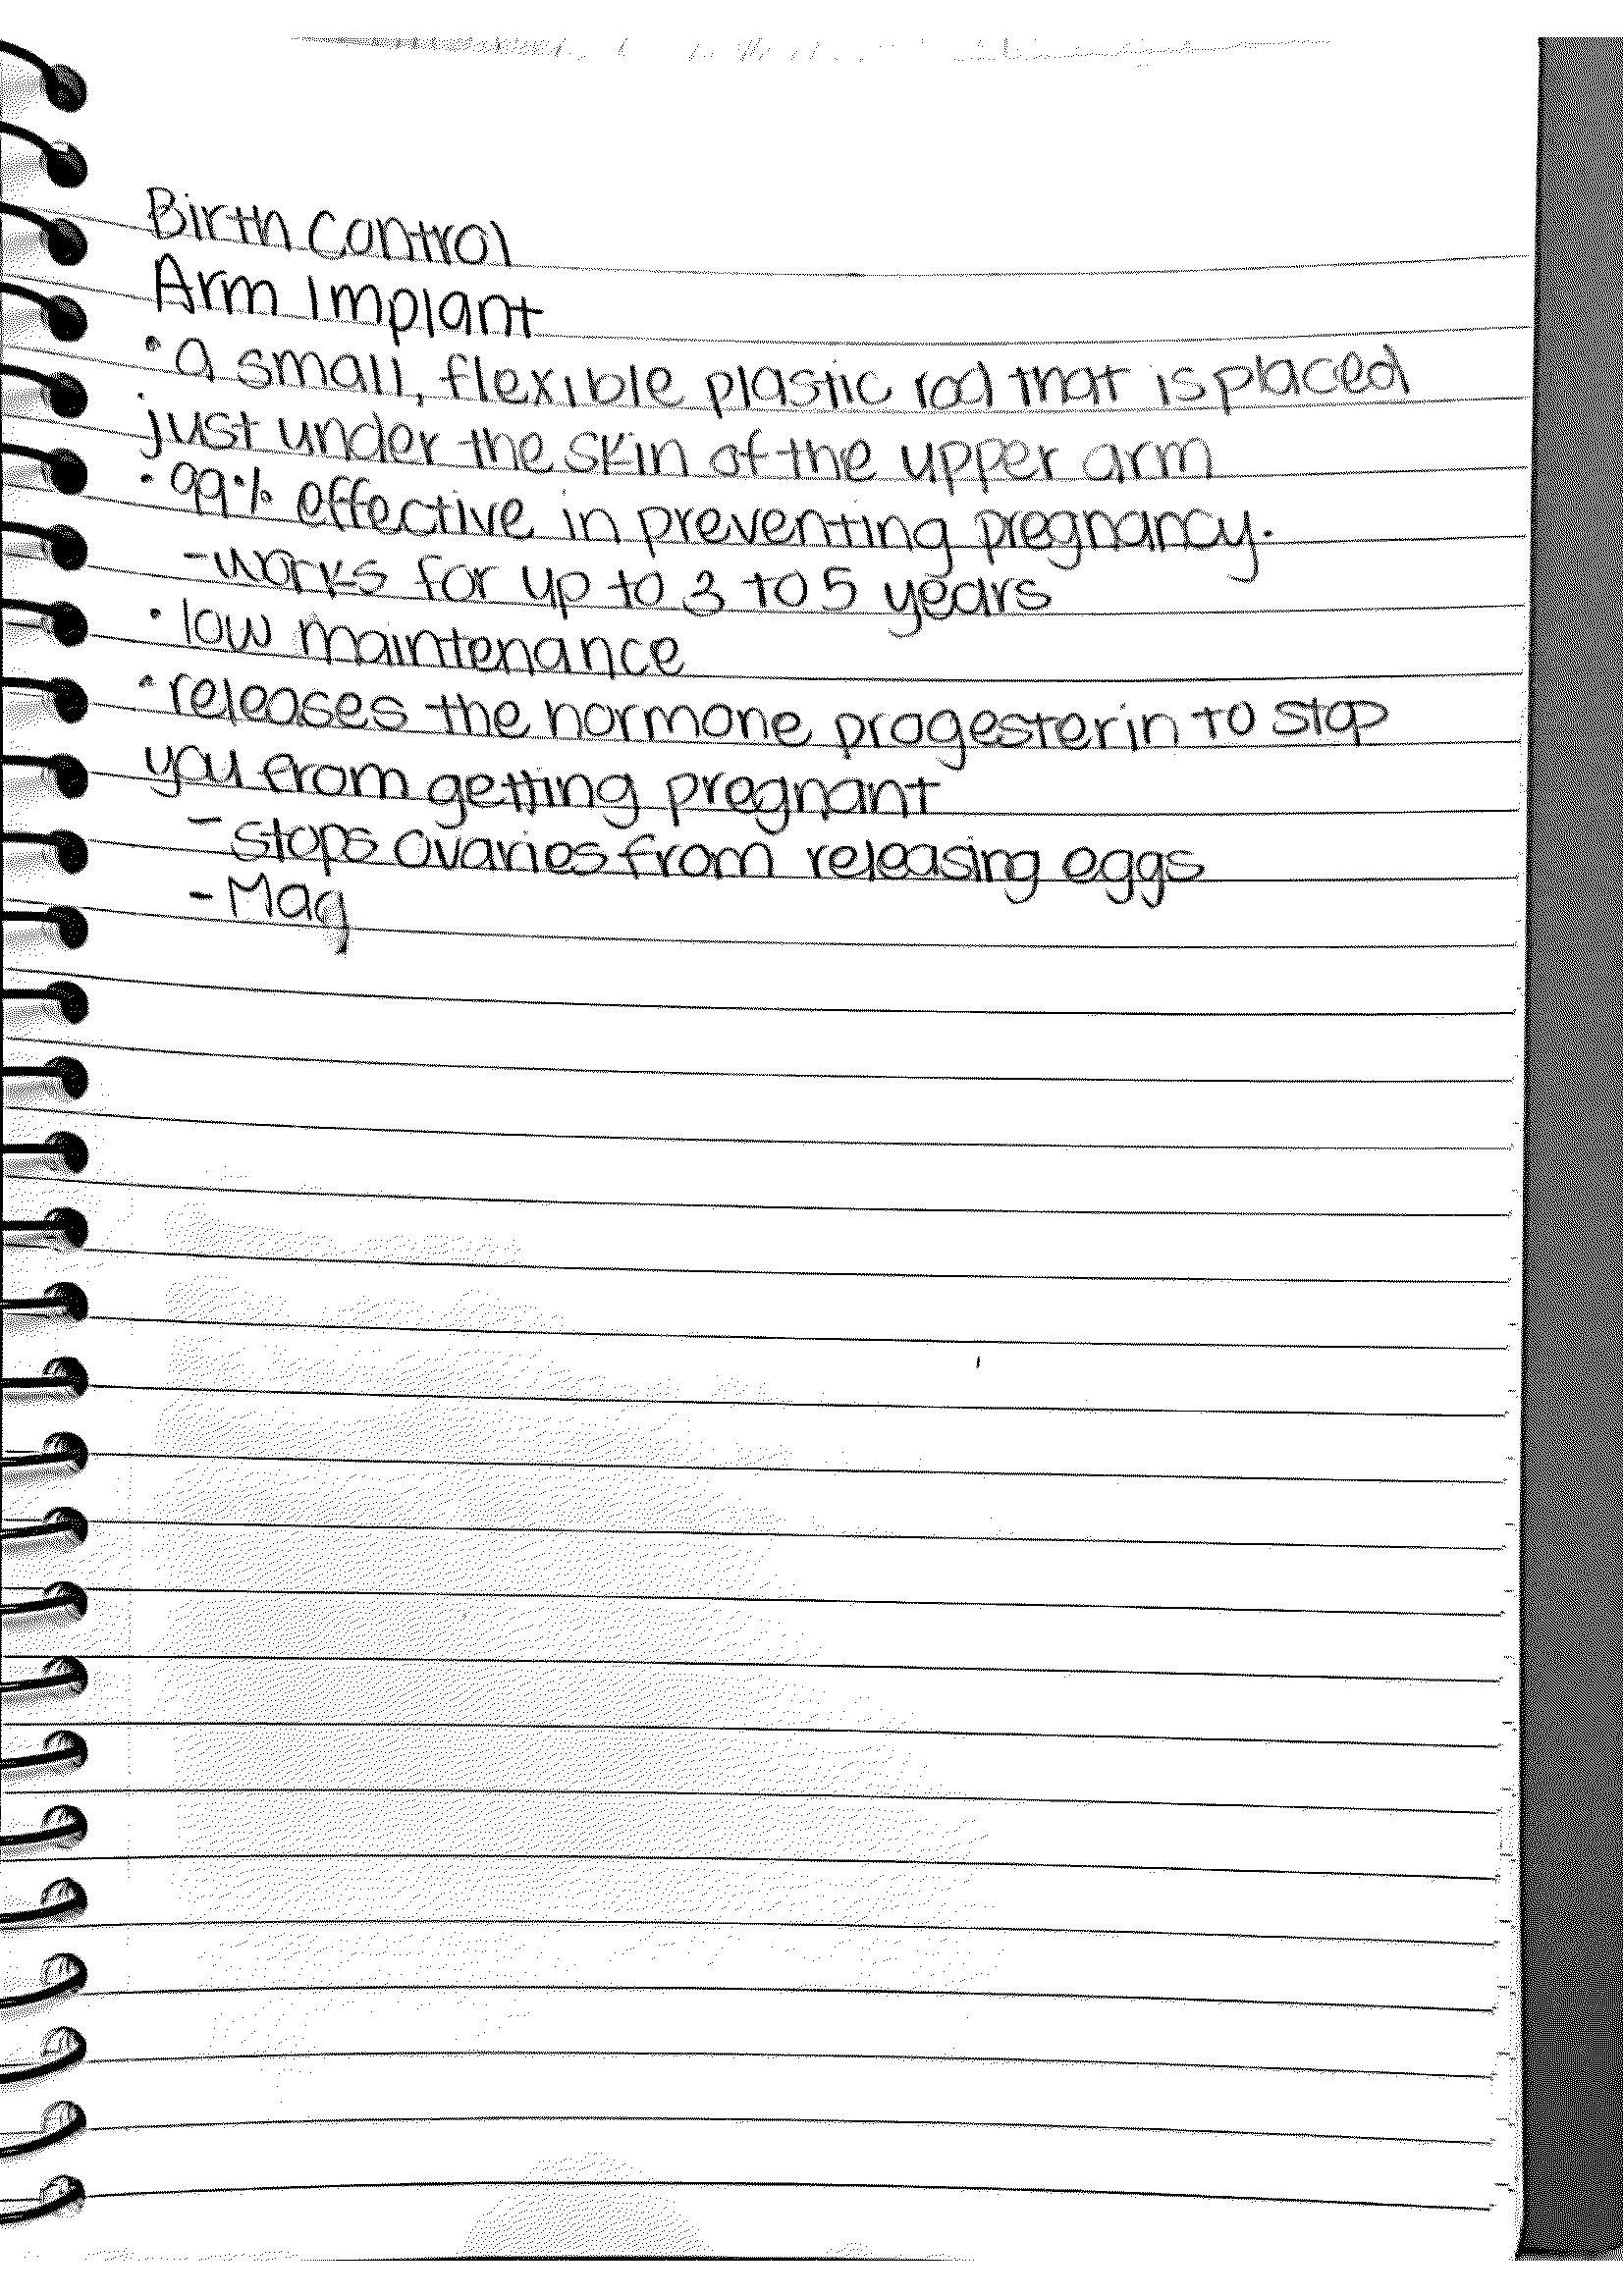 Birth Control
Arm Implant
• a small, flexible plastic rod that is placed
just under the skin of the upper arm
• 99% effective in preventing pregnancy.
- works for up to 3 to 5 years
• low maintenance
• releases the hormone progesterin to stop
you from getting pregnant
- stops ovaries from releasing eggs
- Mag